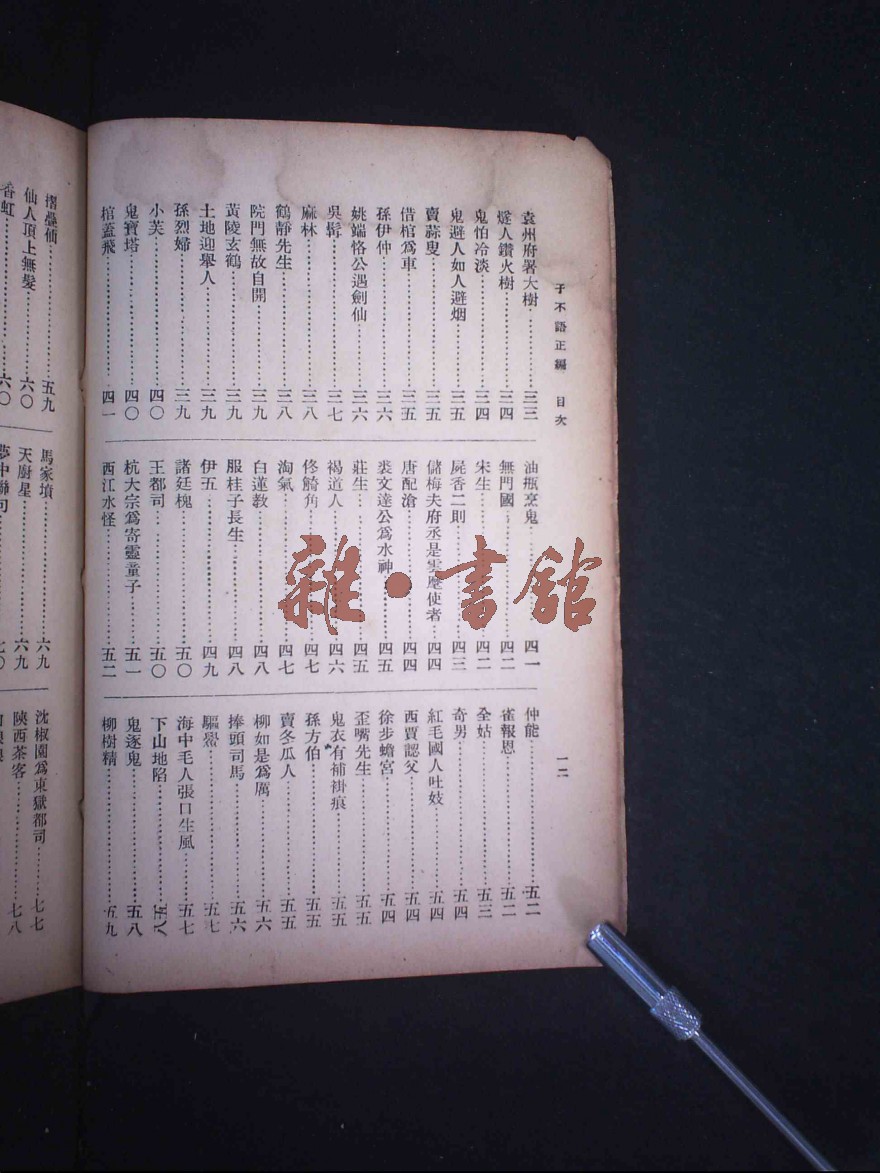 子不語正編 目次
一二
袁州府署大樹……三三
燧人鑽火樹……三四
鬼怕冷淡……三四
鬼避人如人避烟……三五
賣蒜叟……三五
借棺爲車……三五
孫伊仲……三六
姚端恪公遇劍仙……三六
吳髯……三七
麻林……三八
鶴靜先生……三八
院門無故自開……三九
黃陵玄鶴……三九
土地迎舉人……三九
孫烈婦……三九
小芙……四〇
鬼寶塔……四〇
棺蓋飛……四一
油瓶烹鬼……四一
無門國……四二
宋生……四二
屍香二則……四三
儲梅夫府丞是雲麾使者……四四
唐配滄……四四
裘文達公爲水神……四五
莊生……四五
褐道人……四六
佟觭角……四七
淘氣……四七
白蓮教……四八
服桂子長生……四八
伊五……四九
諸廷槐……五〇
王都司……五〇
杭大宗爲寄靈童子……五一
西江水怪……五二
仲能……五二
雀報恩……五二
全姑……五三
奇男……五四
紅毛國人吐妓……五四
西賈認父……五四
徐步蟾宮……五四
歪嘴先生……五五
鬼衣有補褂痕……五五
孫方伯……五五
賣冬瓜人……五五
柳如是爲厲……五六
捧頭司馬……五六
驅鱟……五七
海中毛人張口生風……五七
下山地陷……五八
鬼逐鬼……五八
柳樹精……五九
摺疊仙……五九
仙人頂上無髮……六〇
香虹……六〇
馬家墳……六九
天廚星……六九
夢中聯句……七〇
沈椒園爲東嶽都司……七七
陝西茶客……七八
雜·書館